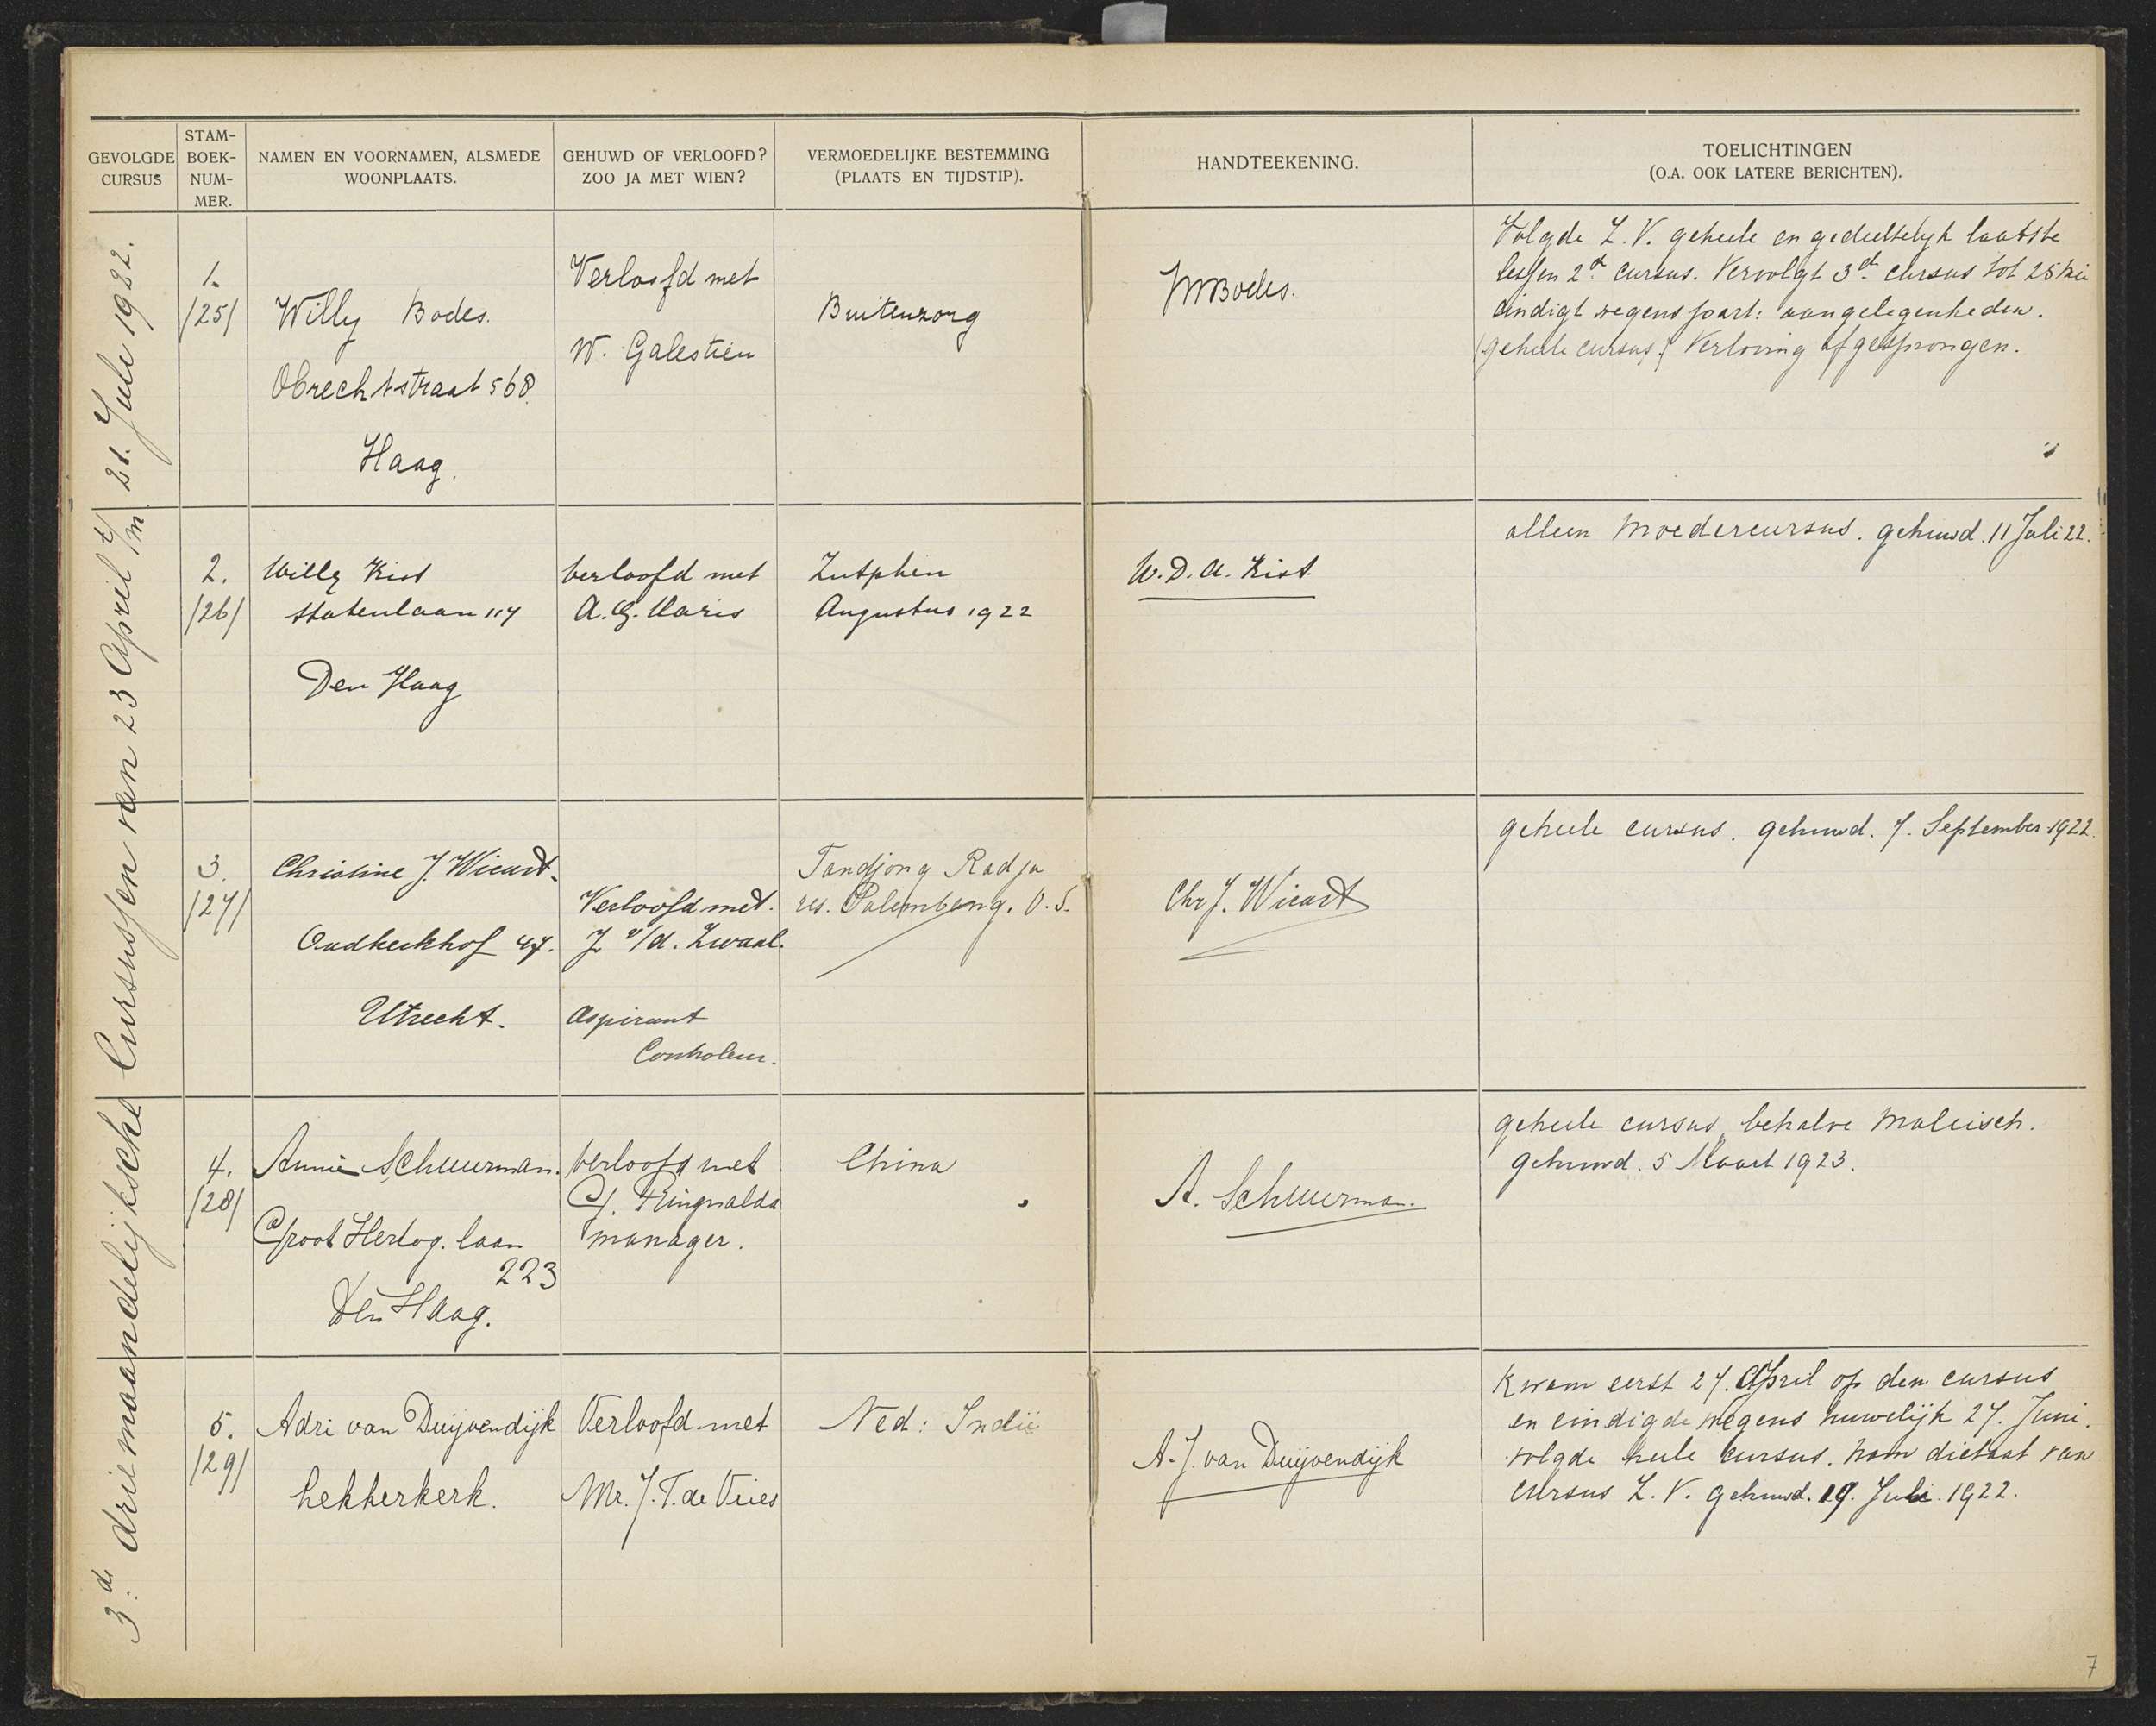 GEVOLGDE
CURSUS
STAM-
BOEK-
NUM-
MER.
NAMEN EN VOORNAMEN, ALSMEDE
WOONPLAATS.
GEHUWD OF VERLOOFD?
ZOO JA MET WIEN?
VERMOEDELIJKE BESTEMMING
(PLAATS EN TIJDSTIP).
HANDTEEKENING.
TOELICHTINGEN
(O.A. OOK LATERE BERICHTEN).
3de driemaandelijksche Cursussen van 23 April t/m 21. Juli 1922.
1.
/25/
Willy Bodes.
Obrechtstraat 568.
Haag.
Verloofd met
W. Galestien
Buitenzorg
WBodes.
Volgde Z.V. geheele en gedeeltelijk laatste
lessen 2de cursus. Vervolgt 3de cursus tot 25
eindigt wegens part: aangelegenheden.
(geheele cursus.) Verloving afgesprongen.
2.
/26/
Willy Kist
Statenlaan 117
Den Haag
verloofd met
A.G. Maris
Zutphen
Augustus 1922
W.D.A. Kist.
alleen Moedercursus. gehuwd. 11 Juli 22.
3.
/27/
Christine J. Wicart.
Oudkerkhof 47.
Utrecht.
Verloofd met.
J v/d. Zwaal.
Aspirant
Controleur.
Tandjong Radja
res. Palembang. O.S.
Chr J. Wicart
geheele cursus. gehuwd. 7. September 1922.
4.
/28/
Annie Schuurman.
Groot Hertog. laan
223
Den Haag.
verloofd met
manager.
China
A. Schuurman.
geheele cursus, behalve Maleisch.
gehuwd. 5 Maart 1923.
5.
/29/
Adri van Duijvendijk
Lekkerkerk.
Verloofd met
Mr. J.T. de Vries
Ned: Indië
A. J. van Duijvendijk
Kwam eerst 27. April op den cursus
en eindigde wegens huwelijk 27. Juni.
volgde heele cursus. nam dictaat van
cursus Z.V. gehuwd. 19. Juli. 1922.
7